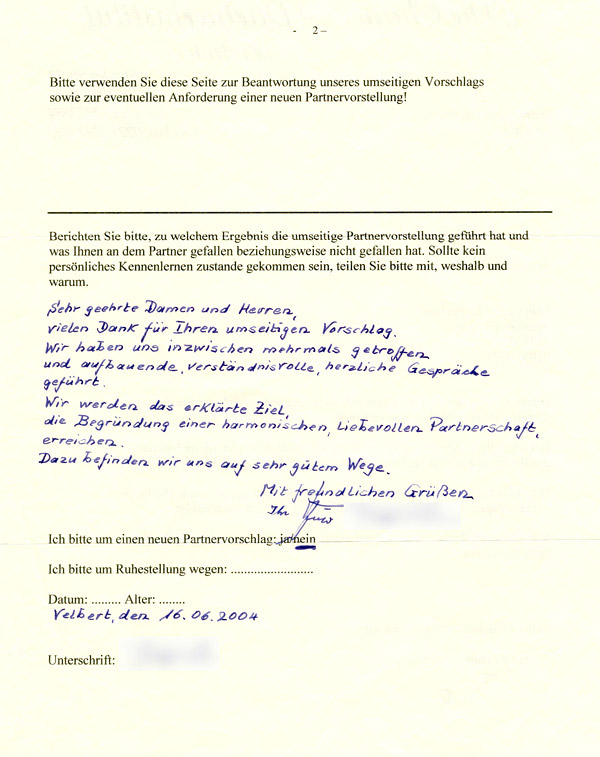 - 2 –
Bitte verwenden Sie diese Seite zur Beantwortung unseres umseitigen Vorschlags
sowie zur eventuellen Anforderung einer neuen Partnervorstellung!
Berichten Sie bitte, zu welchem Ergebnis die umseitige Partnervorstellung geführt hat und
was Ihnen an dem Partner gefallen beziehungsweise nicht gefallen hat. Sollte kein
persönliches Kennenlernen zustande gekommen sein, teilen Sie bitte mit, weshalb und
warum.
Sehr geehrte Damen und Herren,
vielen Dank für Ihren umseitigen Vorschlag.
Wir haben uns inzwischen mehrmals getroffen
und aufbauende, verständnisvolle, herzliche Gespräche
geführt.
Wir werden das erklärte Ziel,
die Begründung einer harmonischen, liebevollen Partnerschaft,
erreichen.
Dazu befinden wir uns auf sehr gutem Wege.
Mit freundlichen Grüßen
Ihr
Ich bitte um einen neuen Partnervorschlag: ja/nein
Ich bitte um Ruhestellung wegen: .........................
Datum: ......... Alter: ........
Velbert, den 16.06.2004
Unterschrift: